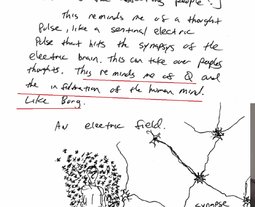 people".]
This reminds me of a thought
Pulse, like a sentinel electric
Pulse that hits the synapsys of the
electric brain. This can take over peoples
thoughts. This reminds me of Q and
the infiltration of the human mind.
Like Borg.
An electric field.
synapse